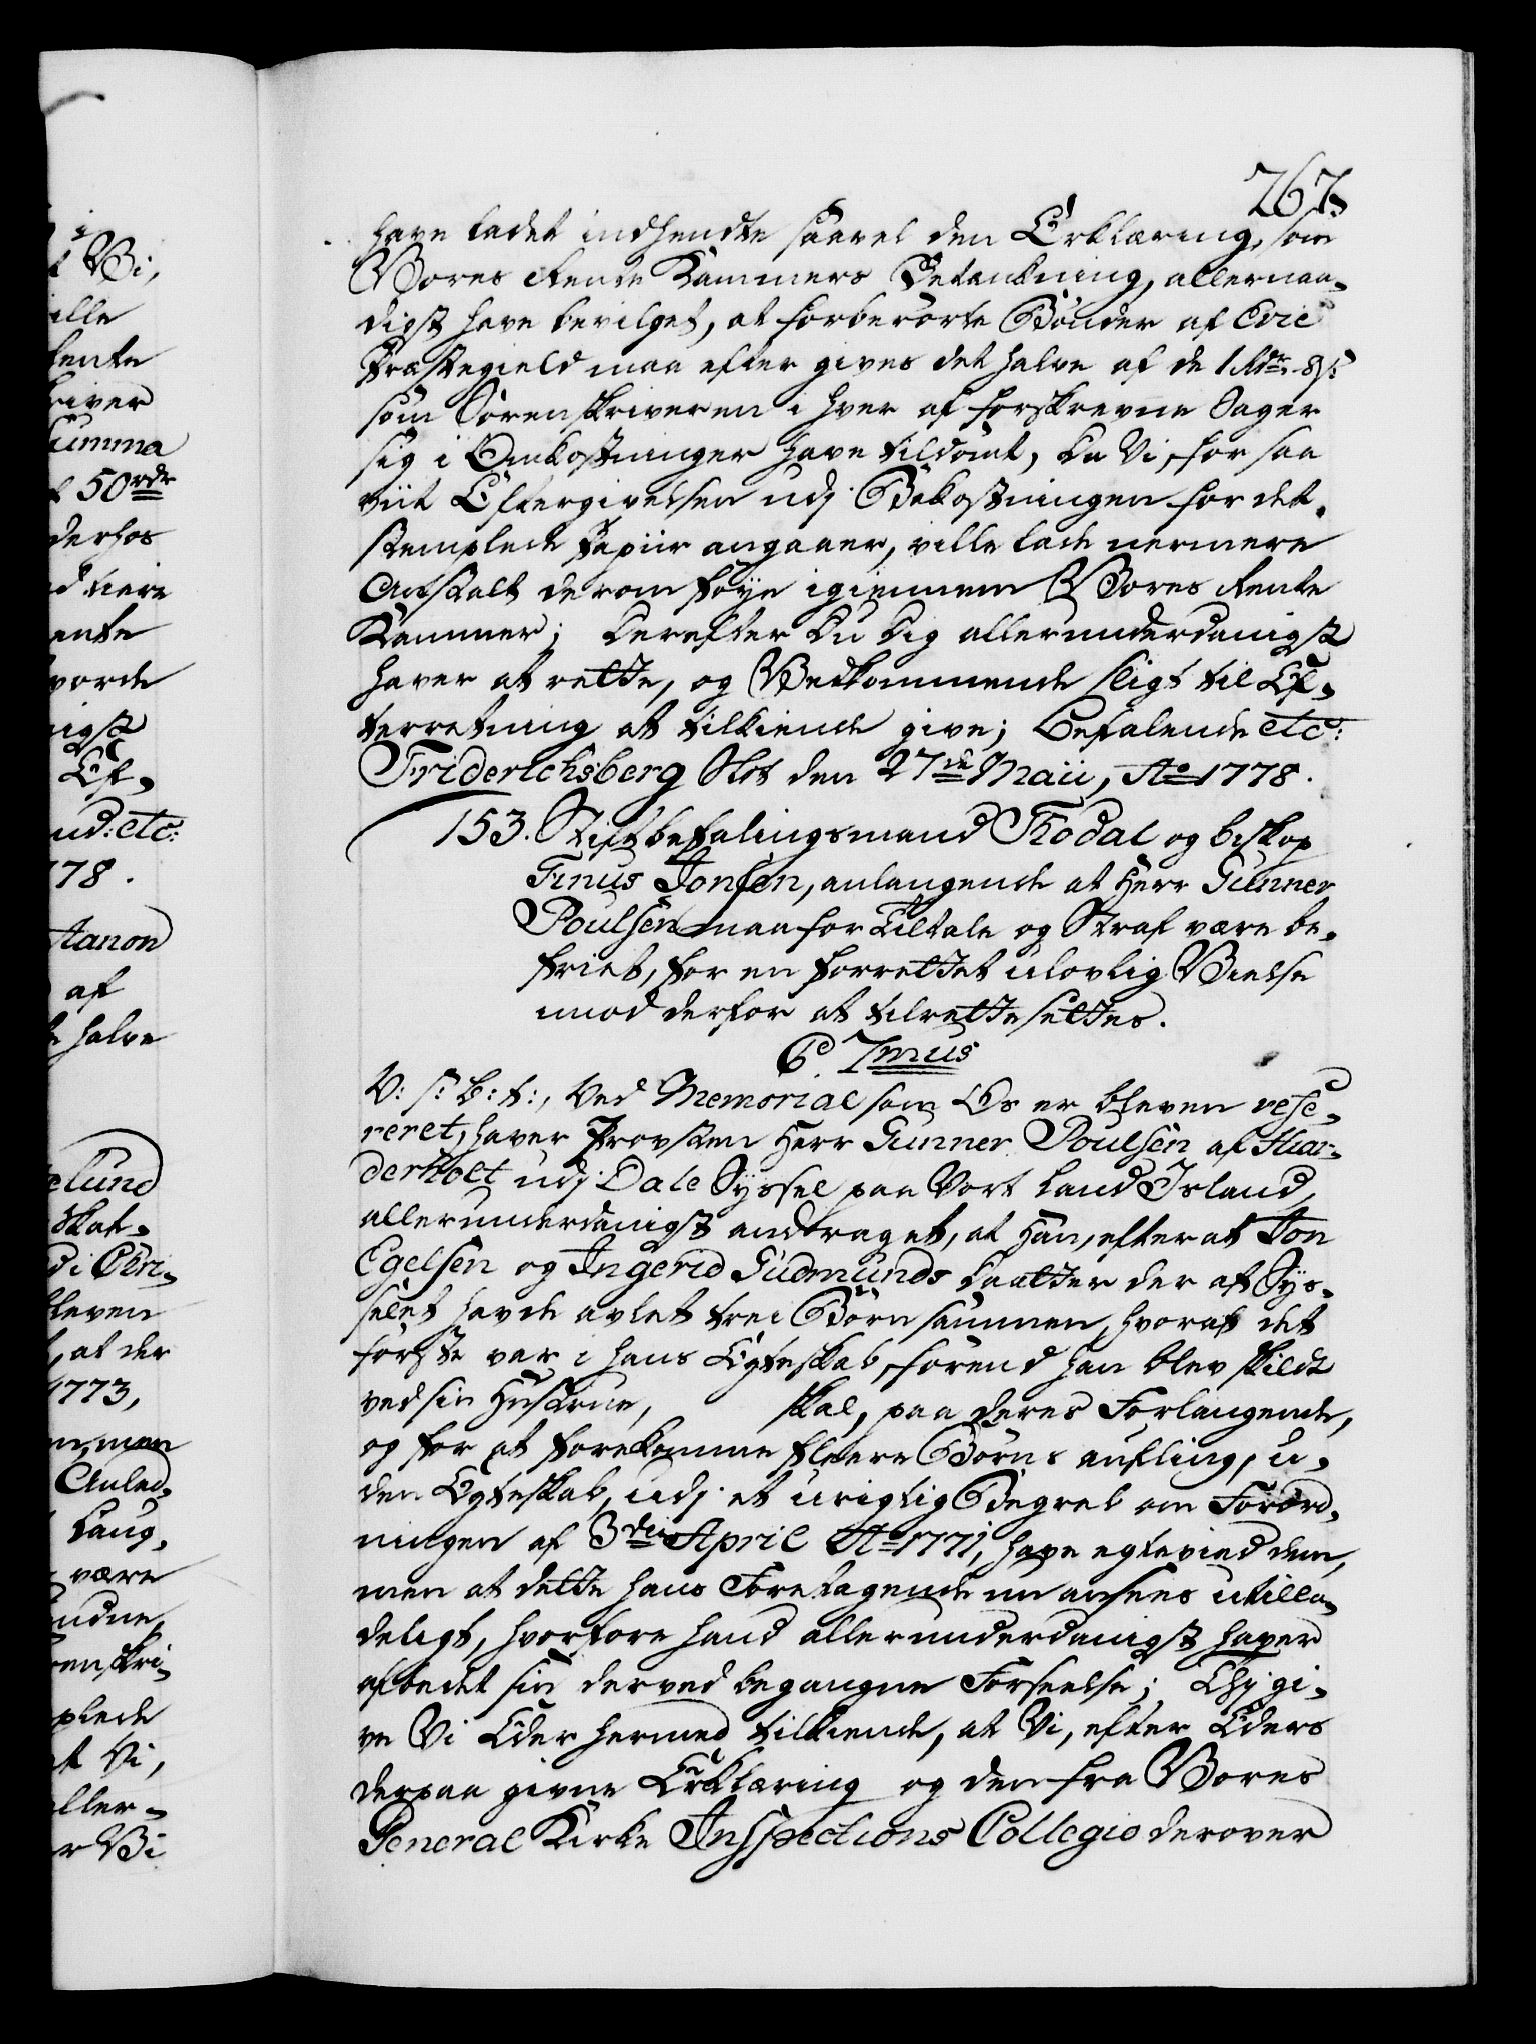 267.
have ladet indhendte saavel den Erklæring, som
Vores Rente Kammers Betænkning, allernaa-
digst have bevilget, at forberörte Bönder af
Præstegield maa efter gives det halve af de 1 Rdr
som Sörenskriveren i hver af forskrevne Sager
sig i Omkostninger have tildömt, da Vi, for saa
viit Eftergivelsen udj Bekostningen for det
stemplede Papiir angaaer, ville lade nermere
Anstalt derom föye igiennem Vores Rente
Kammer; Derefter du dig allerunderdanigst
haver at rette, og Vedkommende sligt til Ef-
terretning at tilkiende give; Befalende etc:
Friderichsberg Slot den 27de Maii, Ao 1778.
153. Stiftbefalingsmand Thodal og biskop
Finus Jonsen, anlangende at Herr Gunner
Poulsen maa for Tiltale og Straf være be-
friet, for en forrettet ulovlig Vielse
imod derfor at tilrettesettes.
C. 7mus
V: s: b: t:, Ved Memorial som Os er bleven refe-
reret, haver Provsten Herr Gunner Poulsen af Hiar-
derholt udj Dale Syssel paa Vort Land Island,
allerunderdanigst andraget, at Han, efter at Jon
Egelsen og Ingerid Gudmunds Daatter der af Sys-
selet havde avlet trei Börn sammen, hvoraf det
förste var i hans Egteskab, förend han blev skildt
ved sin Hustrue, skal, paa deres Forlangende,
og for at forekomme fleere Börns aufling, u-
den Egteskab, udj et urigtig Begreb om Forord-
ningen af 3die April Ao 1771, have egteviedt dem,
men at dette hans Foretagende nu ansees utilla-
deligt, hvorfore hand allerunderdanigst haver
afbedet sin derved begangne Forseelse; Thj gi-
ve Vi Eder hermed tilkiende, at Vi, efter Eders
derpaa givne Erklæring og den fra Vores
General Kirke Inspections Collegio derover